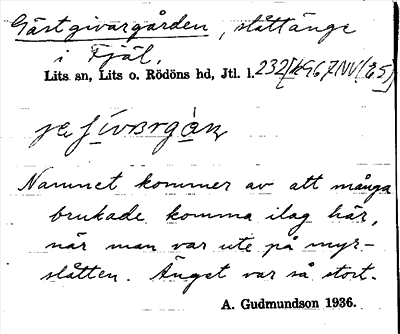 Gästgivargården, slåttänge
i Fjäl,
Lits sn, Lits o. Rödöns hd, Jtl. l.
Namnet kommer av att många
brukade komma ilag här,
när man var ute på myr-
slåtten. Änget var så stort.
A. Gudmundson 1936.